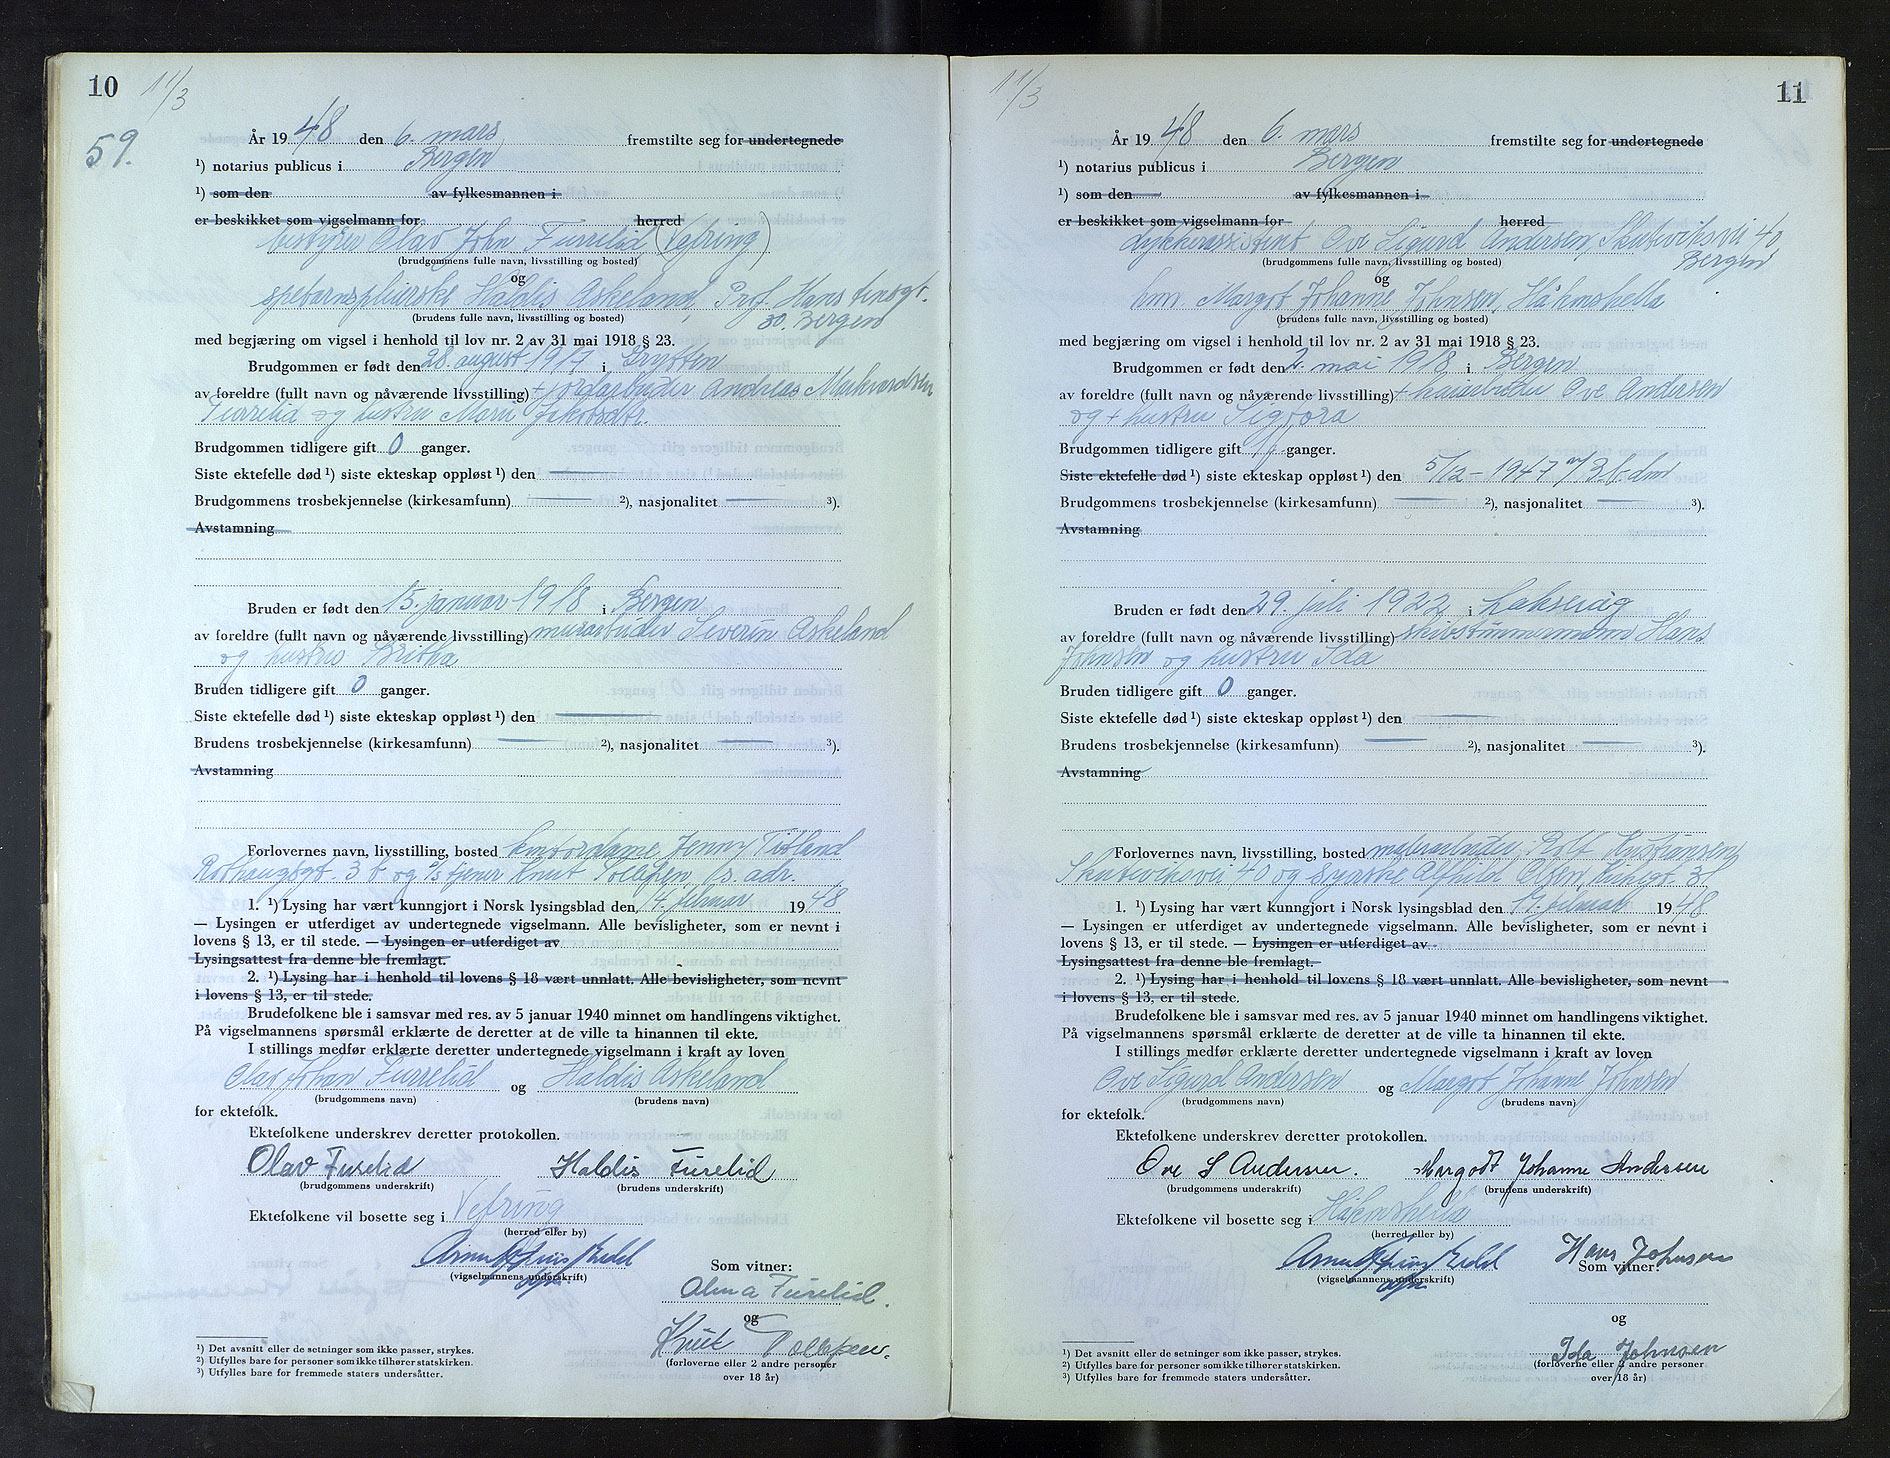 10 11/3
59.
År 1948 den 6. mars fremstilte seg for undertegnede
¹) notarius publicus i Bergen
¹) som den av fylkesmannen i
er beskikket som vigselmann for herred
bestyrer Olav John Furelid (Vefring)
(brudgommens fulle navn, livsstilling og bosted)
og
spebarnspleierske Haldis Askeland, Prof. Hans
30. Bergen
(brudens fulle navn, livsstilling og bosted)
med begjæring om vigsel i henhold til lov nr. 2 av 31 mai 1918 § 23.
Brudgommen er født den 28. august 1917 i Grytten
av foreldre (fullt navn og nåværende livsstilling) + jordarbeider Andreas
og hustru
Brudgommen tidligere gift 0 ganger.
Siste ektefelle død ¹) siste ekteskap oppløst ¹) den
Brudgommens trosbekjennelse (kirkesamfunn) ²), nasjonalitet ³).
Avstamning
Bruden er født den 15. januar 1918 i Bergen
av foreldre (fullt navn og nåværende livsstilling) murarbeider Severin Askeland
og hustru Britha
Bruden tidligere gift 0 ganger.
Siste ektefelle død ¹) siste ekteskap oppløst ¹) den
Brudens trosbekjennelse (kirkesamfunn) ²), nasjonalitet ³).
Avstamning
Forlovernes navn, livsstilling, bosted kontordame Jenny Titland
Rothaugsgt. 3 b og Knut s. adr.
1. ¹) Lysing har vært kunngjort i Norsk lysingsblad den 14. februar 1948
— Lysingen er utferdiget av undertegnede vigselmann. Alle bevisligheter, som er nevnt i
lovens § 13, er til stede. — Lysingen er utferdiget av
Lysingsattest fra denne ble fremlagt.
2. ¹) Lysing har i henhold til lovens § 18 vært unnlatt. Alle bevisligheter, som nevnt
i lovens § 13, er til stede.
Brudefolkene ble i samsvar med res. av 5 januar 1940 minnet om handlingens viktighet.
På vigselmannens spørsmål erklærte de deretter at de ville ta hinannen til ekte.
I stillings medfør erklærte deretter undertegnede vigselmann i kraft av loven
Olav Johan Furrelid og Haldis Askeland
(brudgommens navn) (brudens navn)
for ektefolk.
Ektefolkene underskrev deretter protokollen.
Olav Furelid Haldis Furelid
(brudgommens underskrift) (brudens underskrift)
Ektefolkene vil bosette seg i Vefring
(herred eller by)
(vigselmannens underskrift)
Som vitner:
Alma Furelid.
og
Knut
(forloverne eller 2 andre personer
over 18 år)
¹) Det avsnitt eller de setninger som ikke passer, strykes.
²) Utfylles bare for personer som ikke tilhører statskirken.
³) Utfylles bare for fremmede staters undersåtter.
11/3 11
År 1948 den 6. mars fremstilte seg for undertegnede
¹) notarius publicus i Bergen
¹) som den av fylkesmannen i
er beskikket som vigselmann for herred
dykkerassistent Ove Sigurd Andersen, Skuteviksvei 40,
Bergen
(brudgommens fulle navn, livsstilling og bosted)
og
hm. Margot Johanne Johnsen, Håkonshella
(brudens fulle navn, livsstilling og bosted)
med begjæring om vigsel i henhold til lov nr. 2 av 31 mai 1918 § 23.
Brudgommen er født den 2. mai 1918 i Bergen
av foreldre (fullt navn og nåværende livsstilling) + havnearbeider Ove Andersen
og + hustru
Brudgommen tidligere gift 1 ganger.
Siste ektefelle død ¹) siste ekteskap oppløst ¹) den 5/12-1947
Brudgommens trosbekjennelse (kirkesamfunn) ²), nasjonalitet ³).
Avstamning
Bruden er født den 29. juli 1922 i Laksevåg
av foreldre (fullt navn og nåværende livsstilling) skibstømmermann Hans
Johnsen og hustru Ida
Bruden tidligere gift 0 ganger.
Siste ektefelle død ¹) siste ekteskap oppløst ¹) den
Brudens trosbekjennelse (kirkesamfunn) ²), nasjonalitet ³).
Avstamning
Forlovernes navn, livsstilling, bosted Rolf Kristiansen,
Skuteviksvei 40 og syerske Alfhild Olsen,
1. ¹) Lysing har vært kunngjort i Norsk lysingsblad den februar 1948
— Lysingen er utferdiget av undertegnede vigselmann. Alle bevisligheter, som er nevnt i
lovens § 13, er til stede. — Lysingen er utferdiget av
Lysingsattest fra denne ble fremlagt.
2. ¹) Lysing har i henhold til lovens § 18 vært unnlatt. Alle bevisligheter, som nevnt
i lovens § 13, er til stede.
Brudefolkene ble i samsvar med res. av 5 januar 1940 minnet om handlingens viktighet.
På vigselmannens spørsmål erklærte de deretter at de ville ta hinannen til ekte.
I stillings medfør erklærte deretter undertegnede vigselmann i kraft av loven
Ove Sigurd Andersen og Margot Johanne Johnsen
(brudgommens navn) (brudens navn)
for ektefolk.
Ektefolkene underskrev deretter protokollen.
Ove S Andersen. Margodt Johanne Andersen
(brudgommens underskrift) (brudens underskrift)
Ektefolkene vil bosette seg i Håkonshella
(herred eller by)
(vigselmannens underskrift)
Hans Johnsen
Som vitner:
og
Ida Johnsen
(forloverne eller 2 andre personer
over 18 år)
¹) Det avsnitt eller de setninger som ikke passer, strykes.
²) Utfylles bare for personer som ikke tilhører statskirken.
³) Utfylles bare for fremmede staters undersåtter.